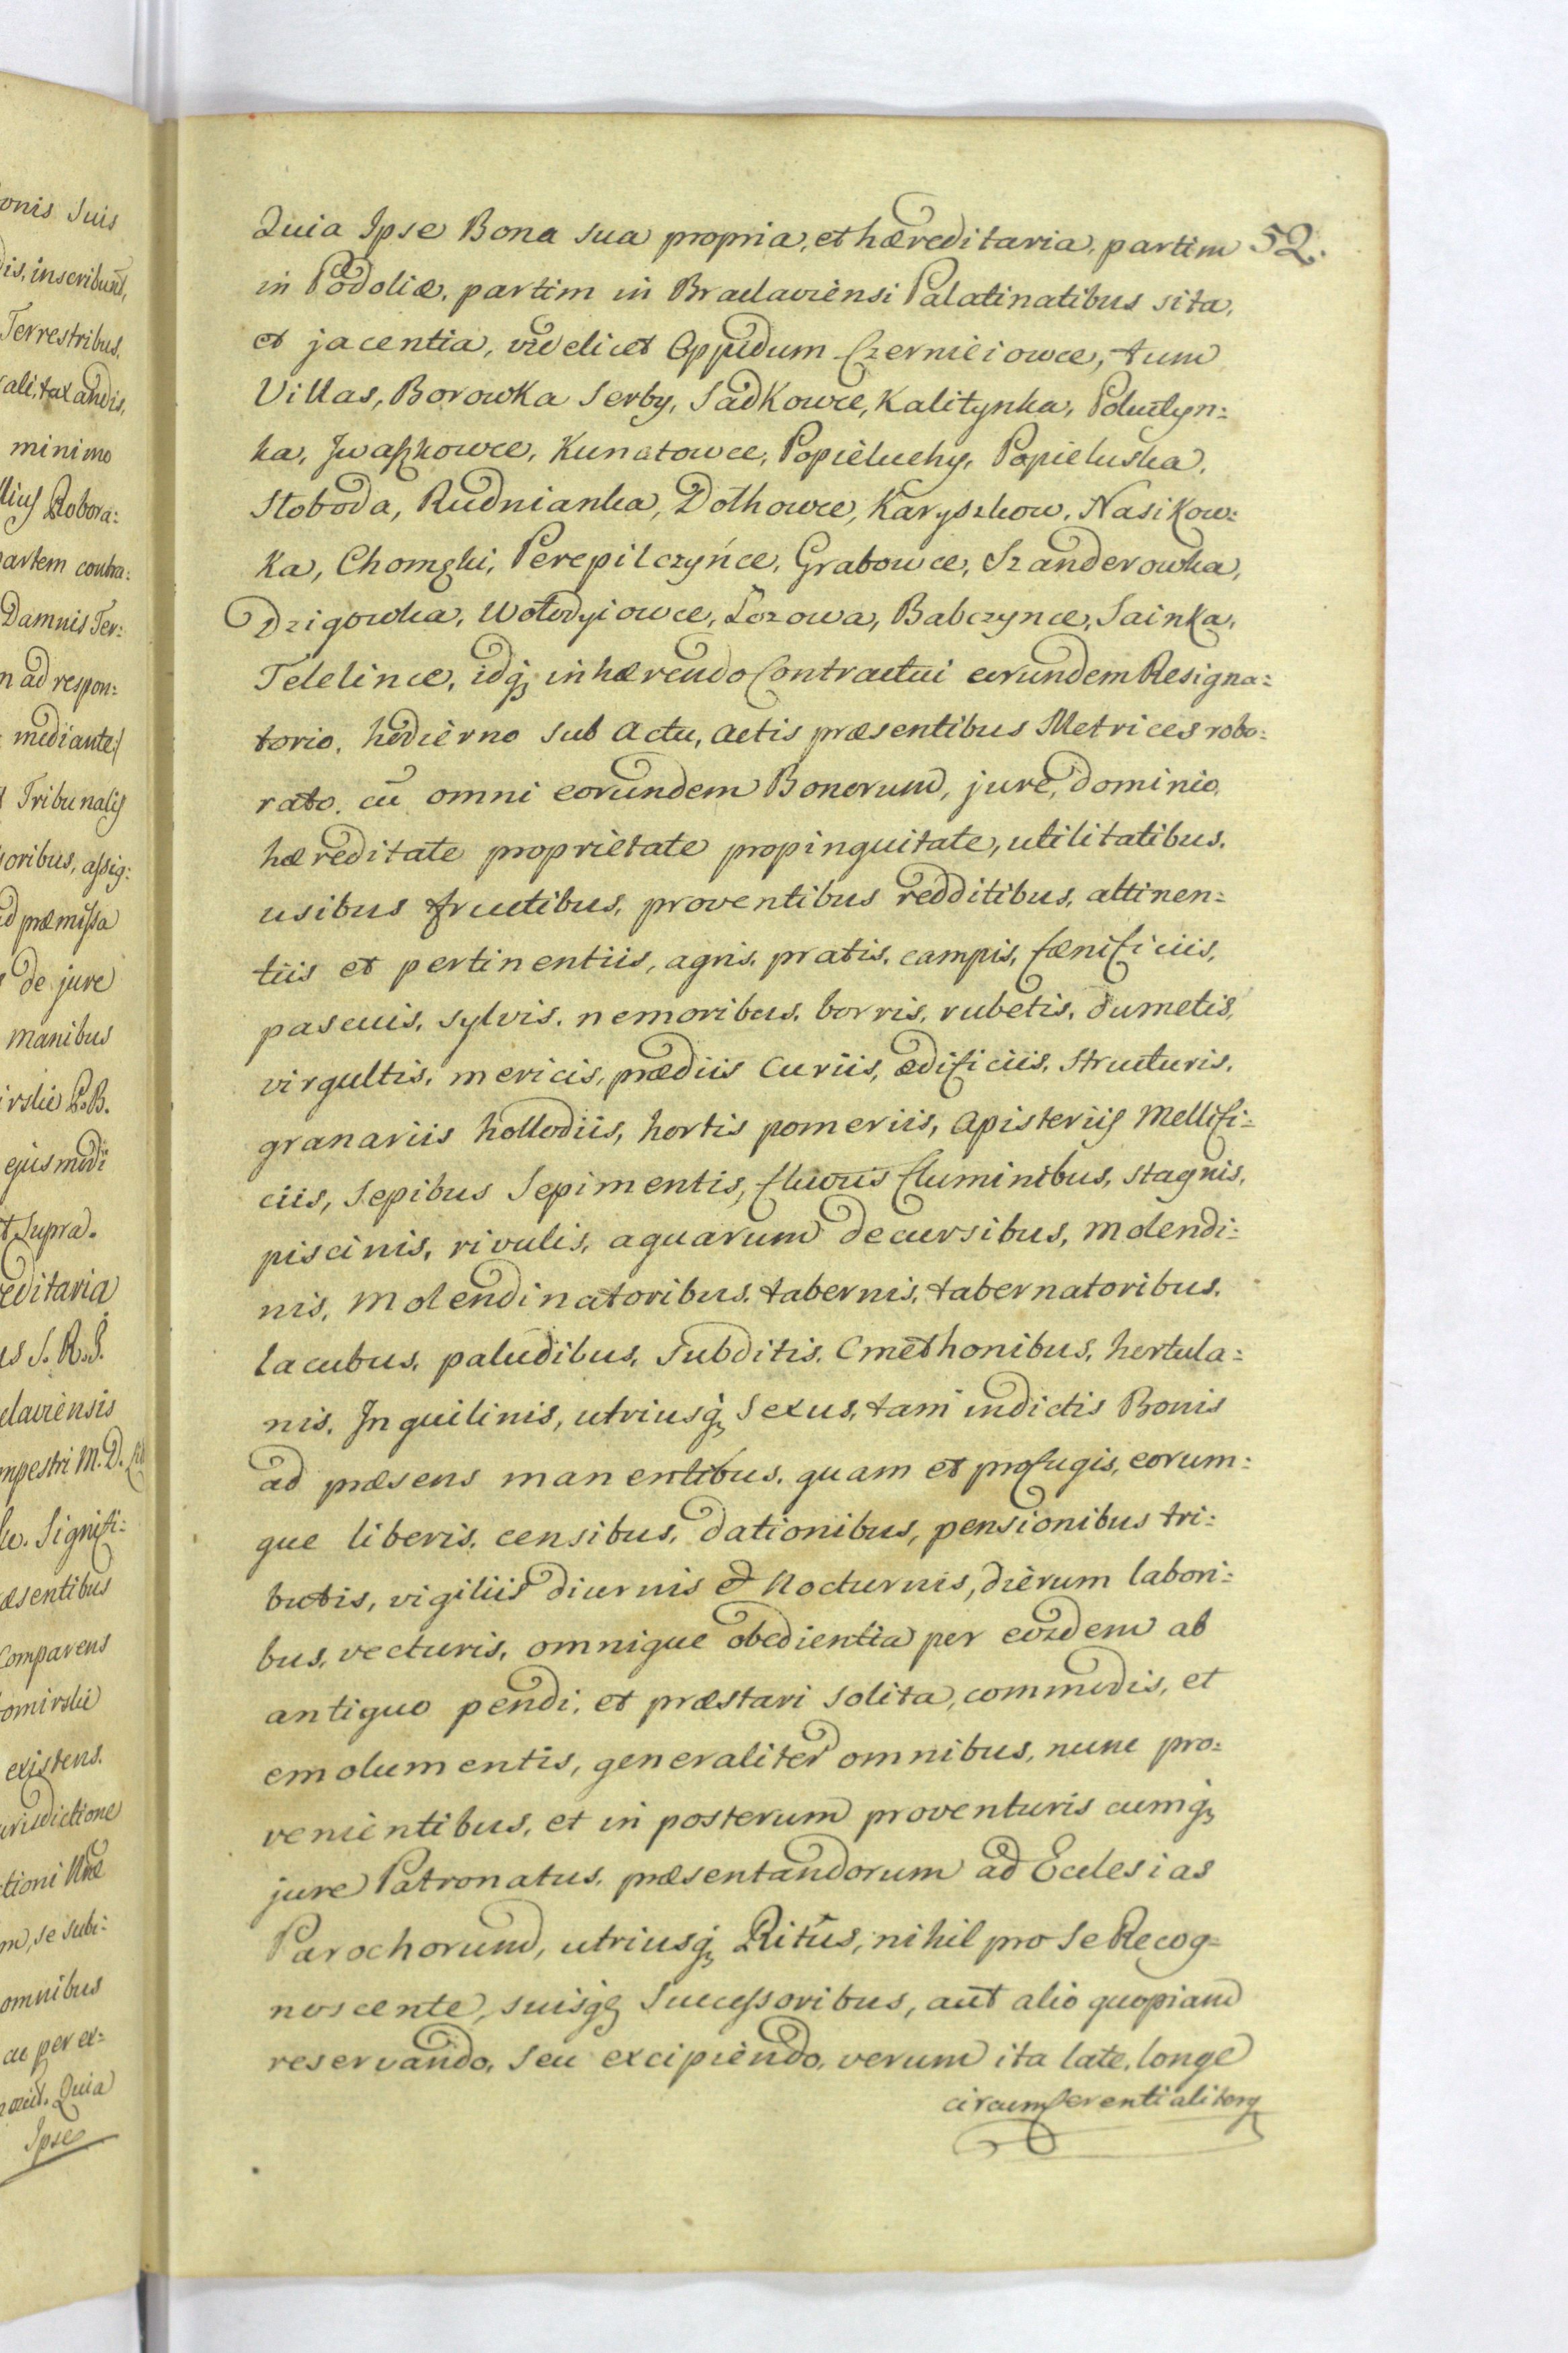 onis Suis
dis, inscribunt,
Terrestribus.
ali, taxandis,
minimo
llius Robora:
artem contra:
Damnis Ter:
n ad respon:
mediante
Tribunalis
oribus, assig:
d præmissa
de jure
manibus
irslie P.B.
ejusmodi
t Supra.
editaria
us S. R. J.
claviensis
mpestri M. D.
Signifi:
æsentibus
Comparens
omirslie
existens.
urisdictione
tioni
m, se subi:
omnibus
cu per ex:
Quia
Ipse
52.
Quia Ipse Bona sua propria, et hæreditaria, partim
in Podoliæ, partim in Braclaviensi Palatinatibus sita,
et jacentia, videlicet Oppidum Czerniiowce, tum
Villas, Borowka Serby, Sadkowce, Kalitynka, Polutyn:
ka, Jwaszkowce, Kunatowce, Popieluchy, Popieluska,
Stoboda, Rudnianka, Dothowce, Karyszkow, Nasikow:
ka, Chomzki, Perepilczyńce, Grabowce, Szanderowka,
Dzigowka, Wołodyiowce, Łozowa, Babczynce, Sainka,
Telelince, idq; inhærendo Contractui eorundem Resigna:
torio, hodierno sub actu, actis præsentibus Metrices robo:
rato, cū omni eorundem Bonorum, jure, dominio,
hæreditate proprietate propinquitate, utilitatibus,
usibus fructibus, proventibus redditibus, attinen:
tiis et pertinentiis, agris, pratis, campis, fænificiis,
pascuis, sylvis, nemoribus, borris, rubetis, dumetis,
virgultis, mericis, prædiis Curiis, ædificiis, structuris,
granariis hollodiis, hortis pomeriis, Apisteriis Mellifi:
ciis, Sepibus Sepimentis, fluviis fluminibus, stagnis,
piscinis, rivulis, aquarum decursibus, molendi:
nis, molendinatoribus, tabernis, tabernatoribus,
lacubus, paludibus, Subditis, Cmethonibus, hortula:
nis, Inquilinis, utriusq; Sexus, tam indictis Bonis
ad præsens manentibus, quam et profugis, eorum:
que liberis, censibus, dationibus, pensionibus tri:
butis, vigiliis diurnis & Nocturnis, dierum labori:
bus, vecturis, omnique obedientia per eosdem ab
antiquo pendi, et præstari solita, commodis, et
emolumentis, generaliter omnibus, nunc pro:
venientibus, et in posterum proventuris cumq;
jure Patronatus, præsentandorum ad Eclesias
Parochorum, utriusq; Ritûs, nihil pro Se Recog:
noscente, suisq; Successoribus, aut alio quopiam
reservando, seu excipiendo, verum ita late, longe
circumferentialiterq